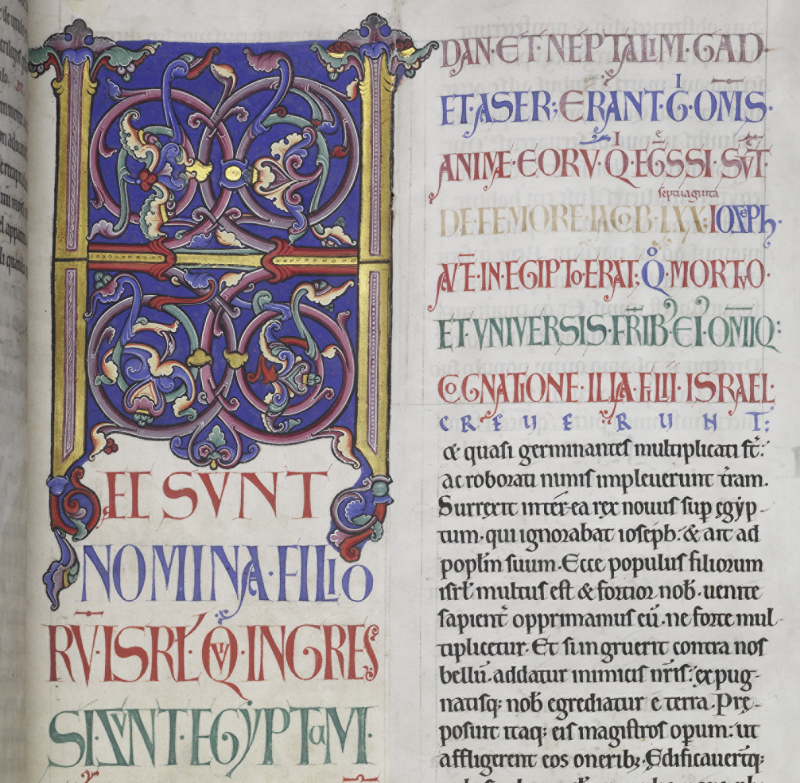 H
EC SVNT
NOMINA·FILIO
RV̅·ISRL̅·QVI·INGRES
SI·SVNT·EGYPTUM·
DAN·ET·NEPTALIM·GAD·
ET·ASER; ERANT·Gͥ·OMS̅·
ANIMĘ·EORV̅·Qͥ·EG̅SSI·SVT̅
septuaginta
DE·FEMORE·IACOB·LXX·IOSEPH·
AVT̅·IN·EGIPTO·ERAT; Qͦ·MORTVO·
ET VNIVERSIS·FR̅IB·EI᾽·OMIQ:
COGNATIONE·ILLA·FILII·ISRAEL·
CREUERUNT;
& quasi germinantes multiplicati st̅:
ac roborati nimis impleuerunt t̅ram.
Surrexit inter ea rex nouus sup̱ egẏp-
tum·qui ignorabat ioseph·& ait ad
popl̅m suum·Ecce populus filiorum
isrl̅ multus est & fortior nob̅·uenite
sapient̅ opprimamus eu̅·ne forte mul-
tiplicetur·Et si ingruerit contra nos
bellu̅·addatur inimicis nr̅is·expug-
natisq; nob̅ egrediatur e terra·Prę-
posuit itaq; eis magistros operum·ut
affligerent eos oneribꝫ·Edificauer̅tq;